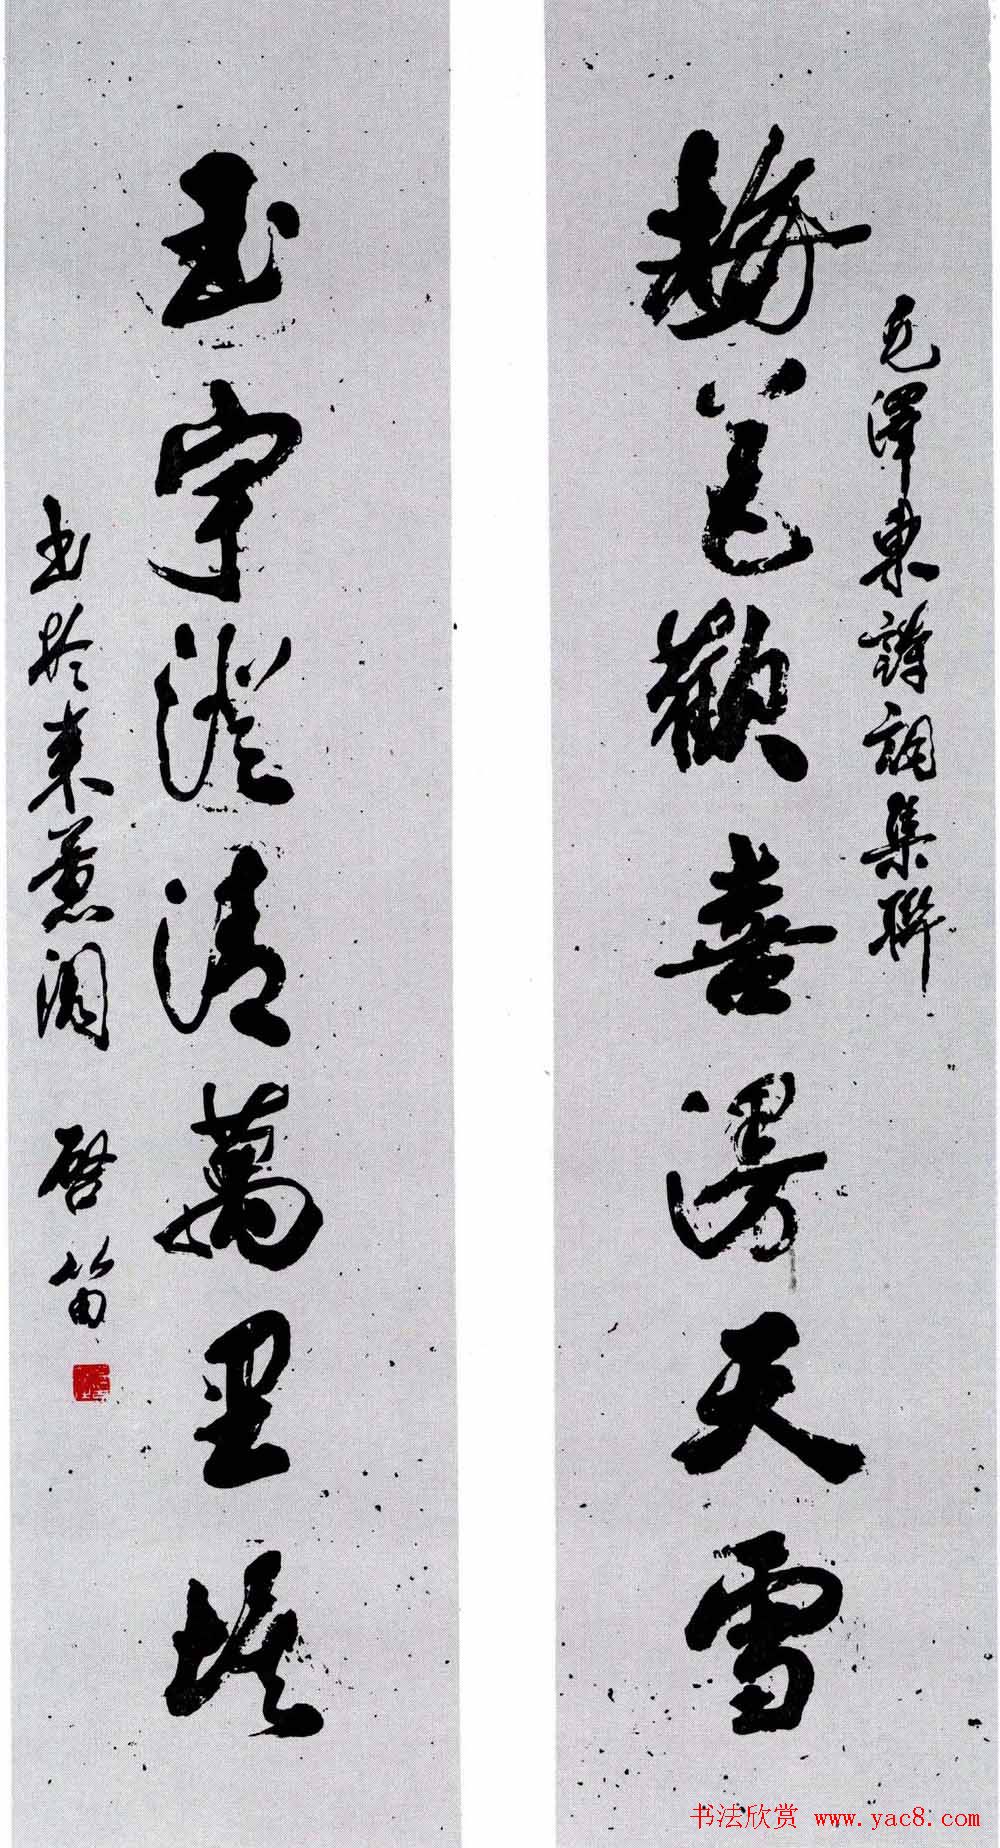 毛澤東詩詞集聯
梅花歡喜漫天雪
玉宇澄清萬里埃
书於東蕙園 啓笛
书法欣赏 www.yac8.com